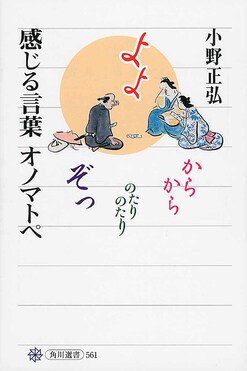 小野正弘
感じる言葉 オノマトペ
よよ
からから
のたり
のたり
ぞっ
角川選書 561